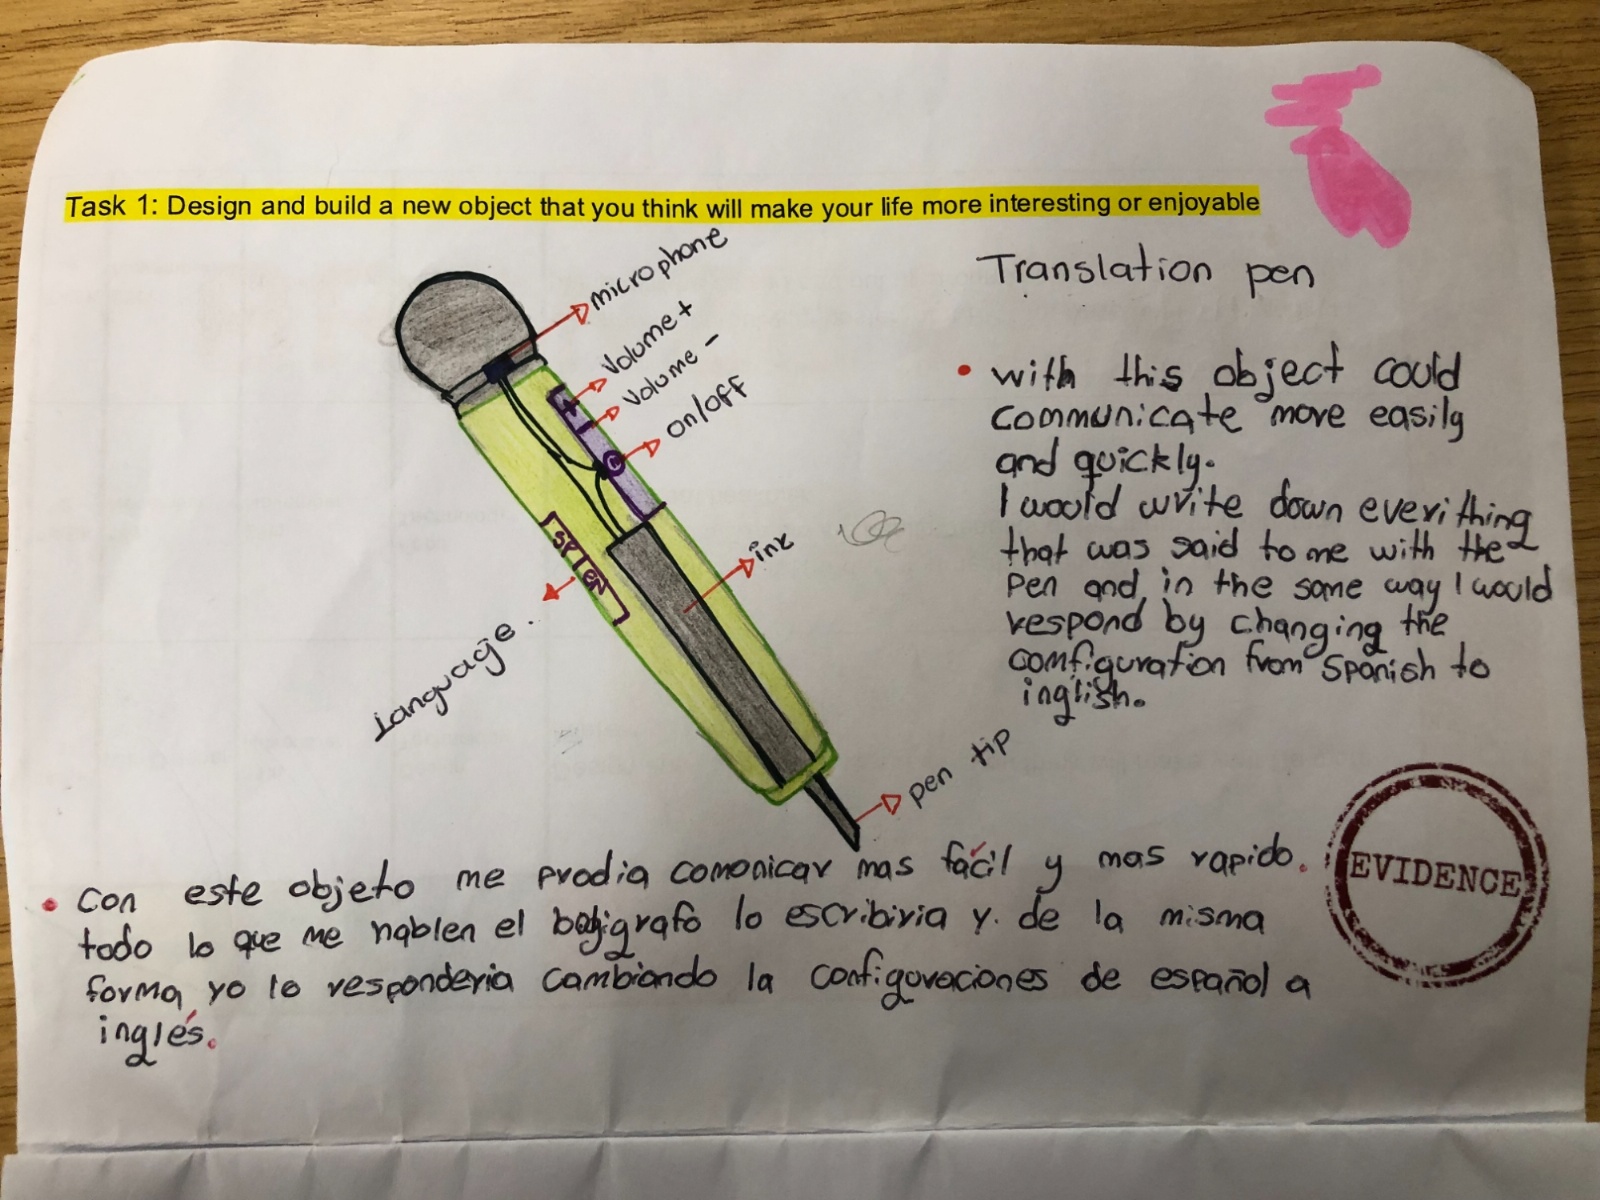 Task 1: Design and build a new object that you think will make your life more interesting or enjoyable
Translation pen
microphone
Volume +
Volume -
on/off
SP EN
ink
Language.
pen tip
• with this object could
communicate more easily
and quickly.
I would write down everithing
that was said to me with the
pen and in the same way I would
respond by changing the
comfiguration from Spanish to
inglish.
EVIDENCE
• Con este objeto me prodia comonicar mas fácil y mas rapido.
todo lo que me hablen el boligrafo lo escribiria y. de la misma
forma yo lo responderia cambiando la configuraciones de español a
inglés.